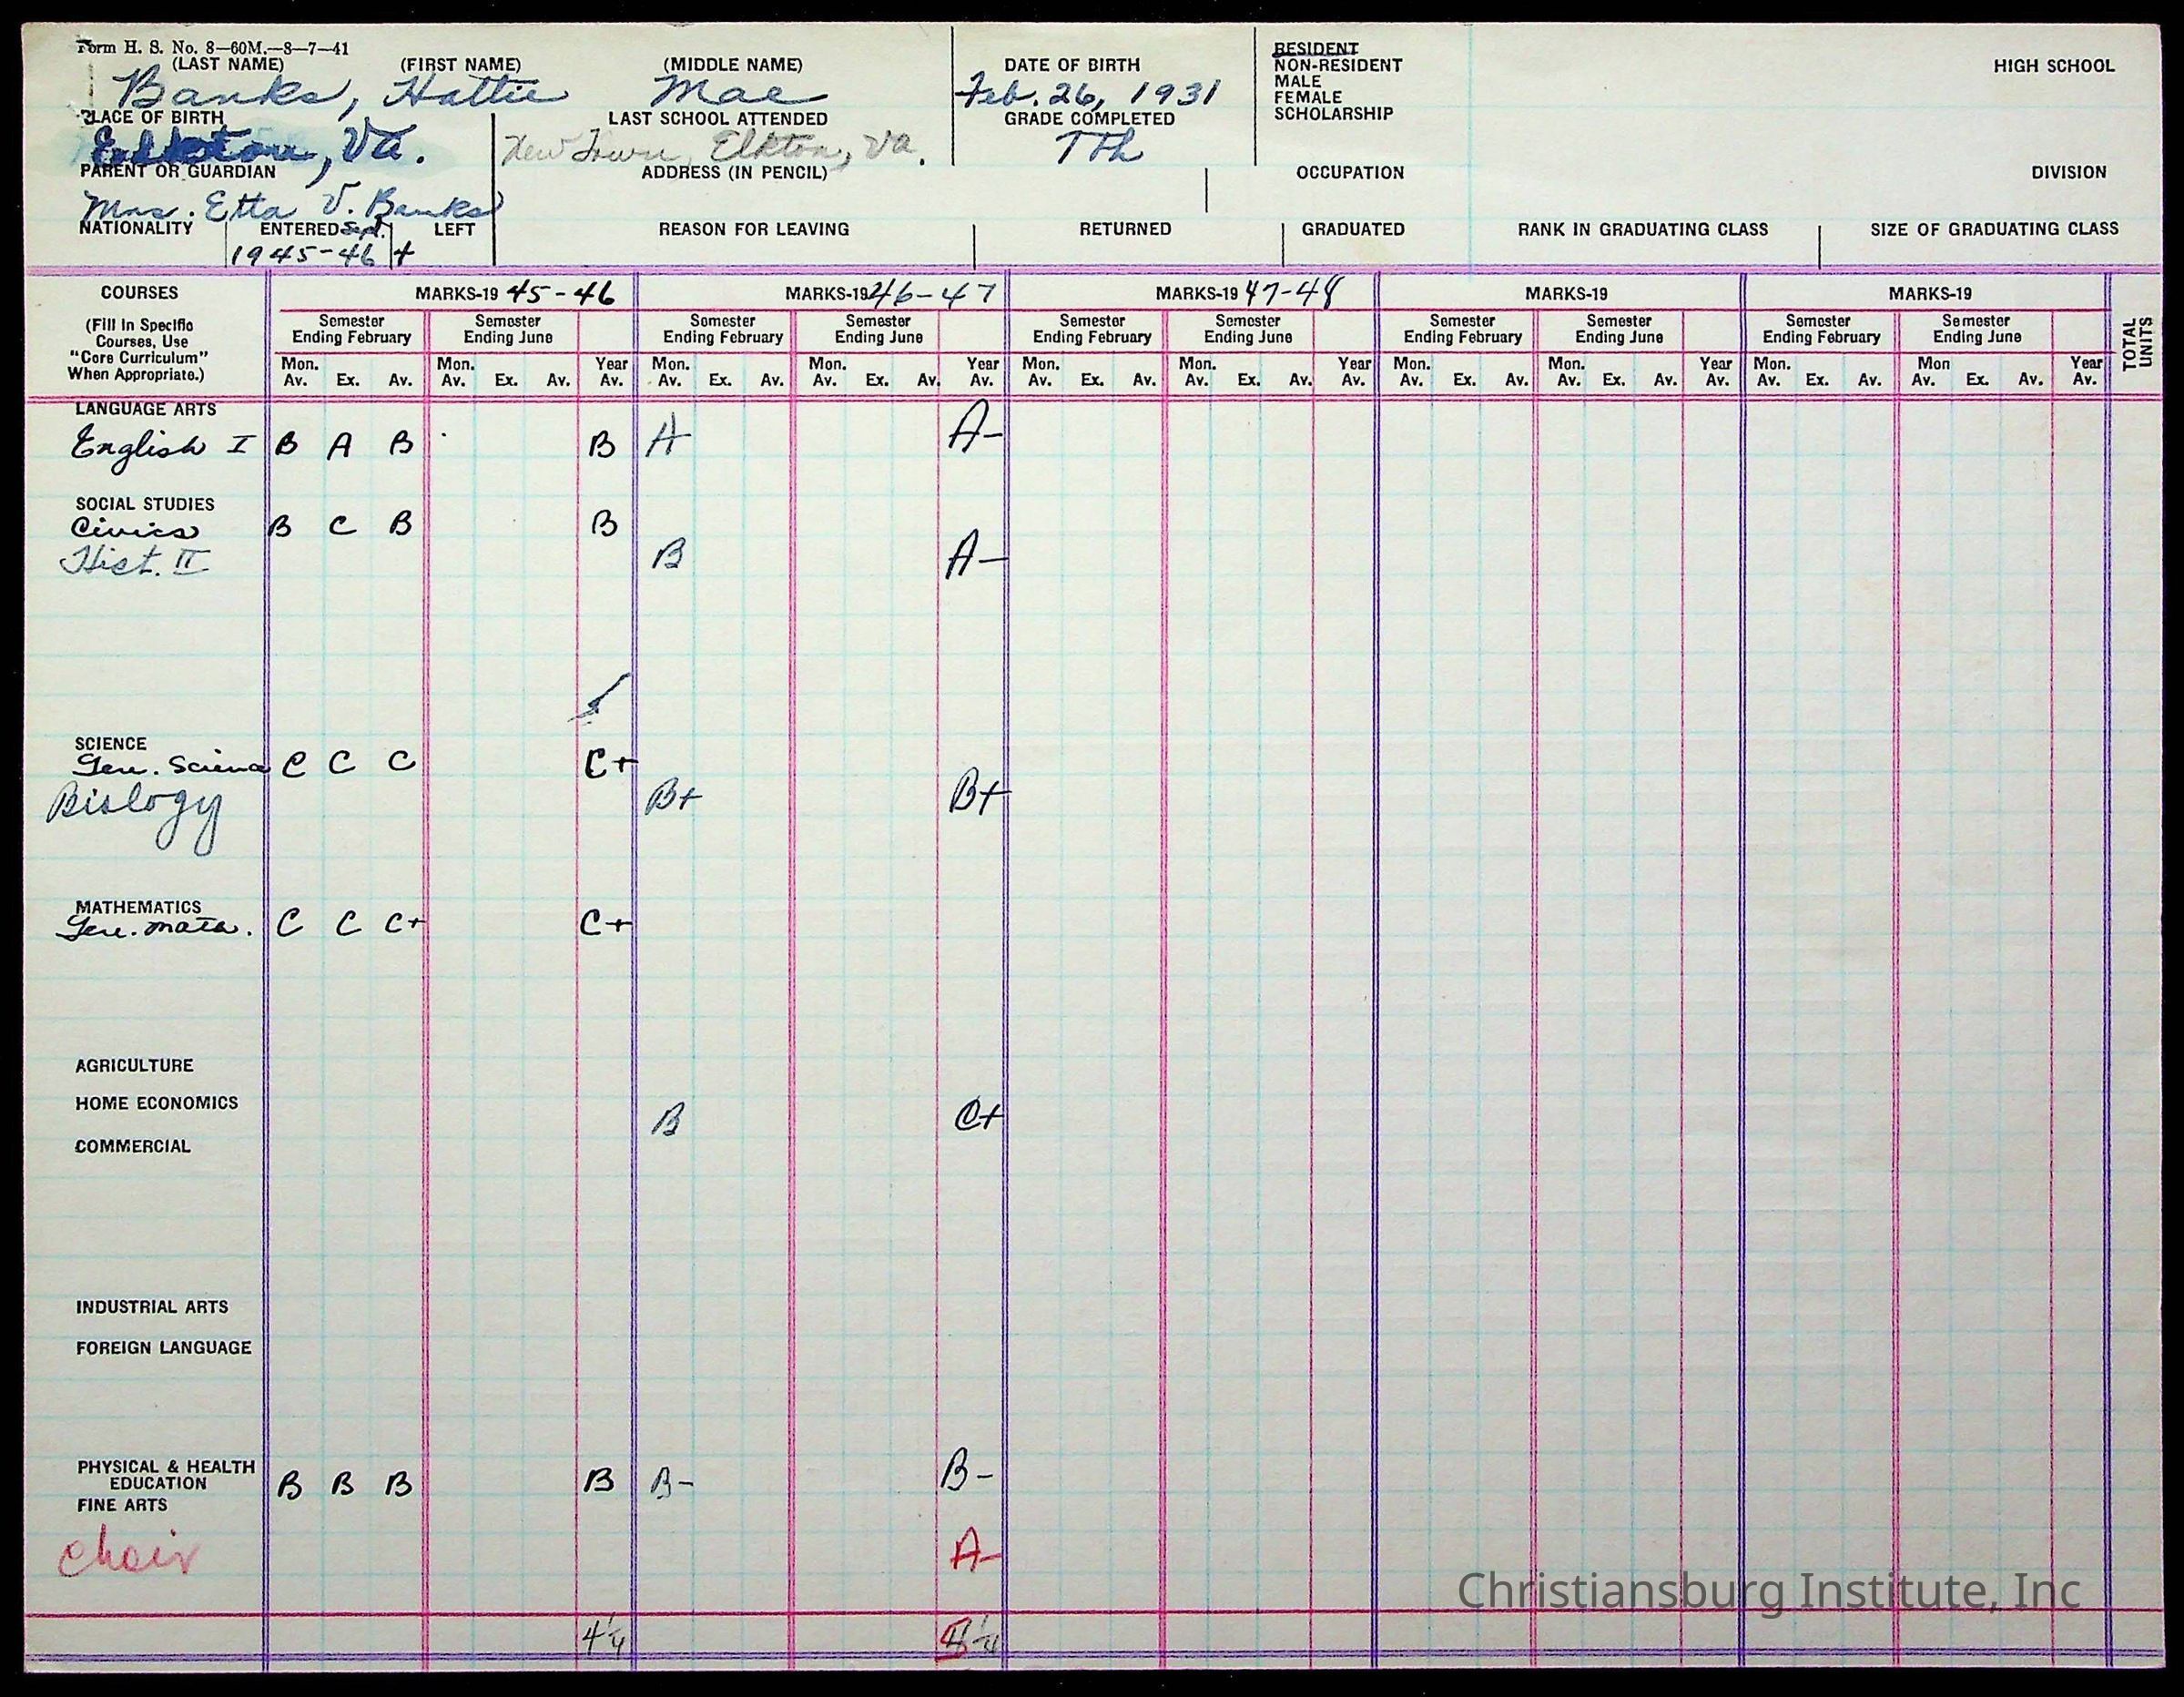 Form H. S. No. 8—60M.—8—7—41
(LAST NAME) (FIRST NAME) (MIDDLE NAME) DATE OF BIRTH RESIDENT HIGH SCHOOL
NON-RESIDENT
Banks, Hattie Mae Feb. 26, 1931 MALE
FEMALE
PLACE OF BIRTH LAST SCHOOL ATTENDED GRADE COMPLETED SCHOLARSHIP
Elkton, Va. New Town, Elkton, Va. 7th
PARENT OR GUARDIAN ADDRESS (IN PENCIL) OCCUPATION DIVISION
Mrs. Etta V. Banks
NATIONALITY ENTERED Sept. LEFT REASON FOR LEAVING RETURNED GRADUATED RANK IN GRADUATING CLASS SIZE OF GRADUATING CLASS
1945-46 +
COURSES MARKS-19 45-46 MARKS-19 46-47 MARKS-19 47-48 MARKS-19 MARKS-19
(Fill in Specific Semester Semester Semester Semester Semester Semester Semester Semester Semester Semester TOTAL UNITS
Courses, Use Ending February Ending June Ending February Ending June Ending February Ending June Ending February Ending June Ending February Ending June
"Core Curriculum" Mon. Mon. Year Mon. Mon. Year Mon. Mon. Year Mon. Mon. Year Mon. Mon Year
When Appropriate.) Av. Ex. Av. Av. Ex. Av. Av. Av. Ex. Av. Av. Ex. Av. Av. Av. Ex. Av. Av. Ex. Av. Av. Av. Ex. Av. Av. Ex. Av. Av. Av. Ex. Av. Av. Ex. Av. Av.
LANGUAGE ARTS
English I B A B B A A-
SOCIAL STUDIES
Civics B C B B
Hist. II B A-
SCIENCE
Gen. Science C C C C+
Biology B+ B+
MATHEMATICS
Gen. Math. C C C+ C+
AGRICULTURE
HOME ECONOMICS B C+
COMMERCIAL
INDUSTRIAL ARTS
FOREIGN LANGUAGE
PHYSICAL & HEALTH
EDUCATION B B B B B- B-
FINE ARTS
Choir A-
Christiansburg Institute, Inc
4 1/4